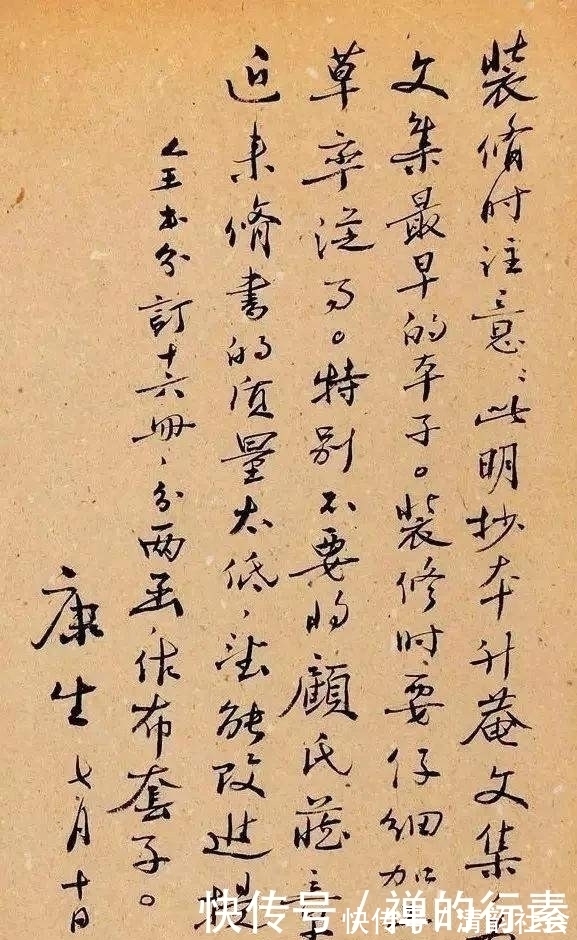 装修时注意：此明抄本升菴文集
文集最早的本子。装修时要仔细加
草率从事。特别不要将顾氏藏章
近来修书的质量太低，望能改进提
全书分订十六册，分两函，作布套子。
康生 七月十日
快传号 / 禅的行素
快传号 / 清韵社会